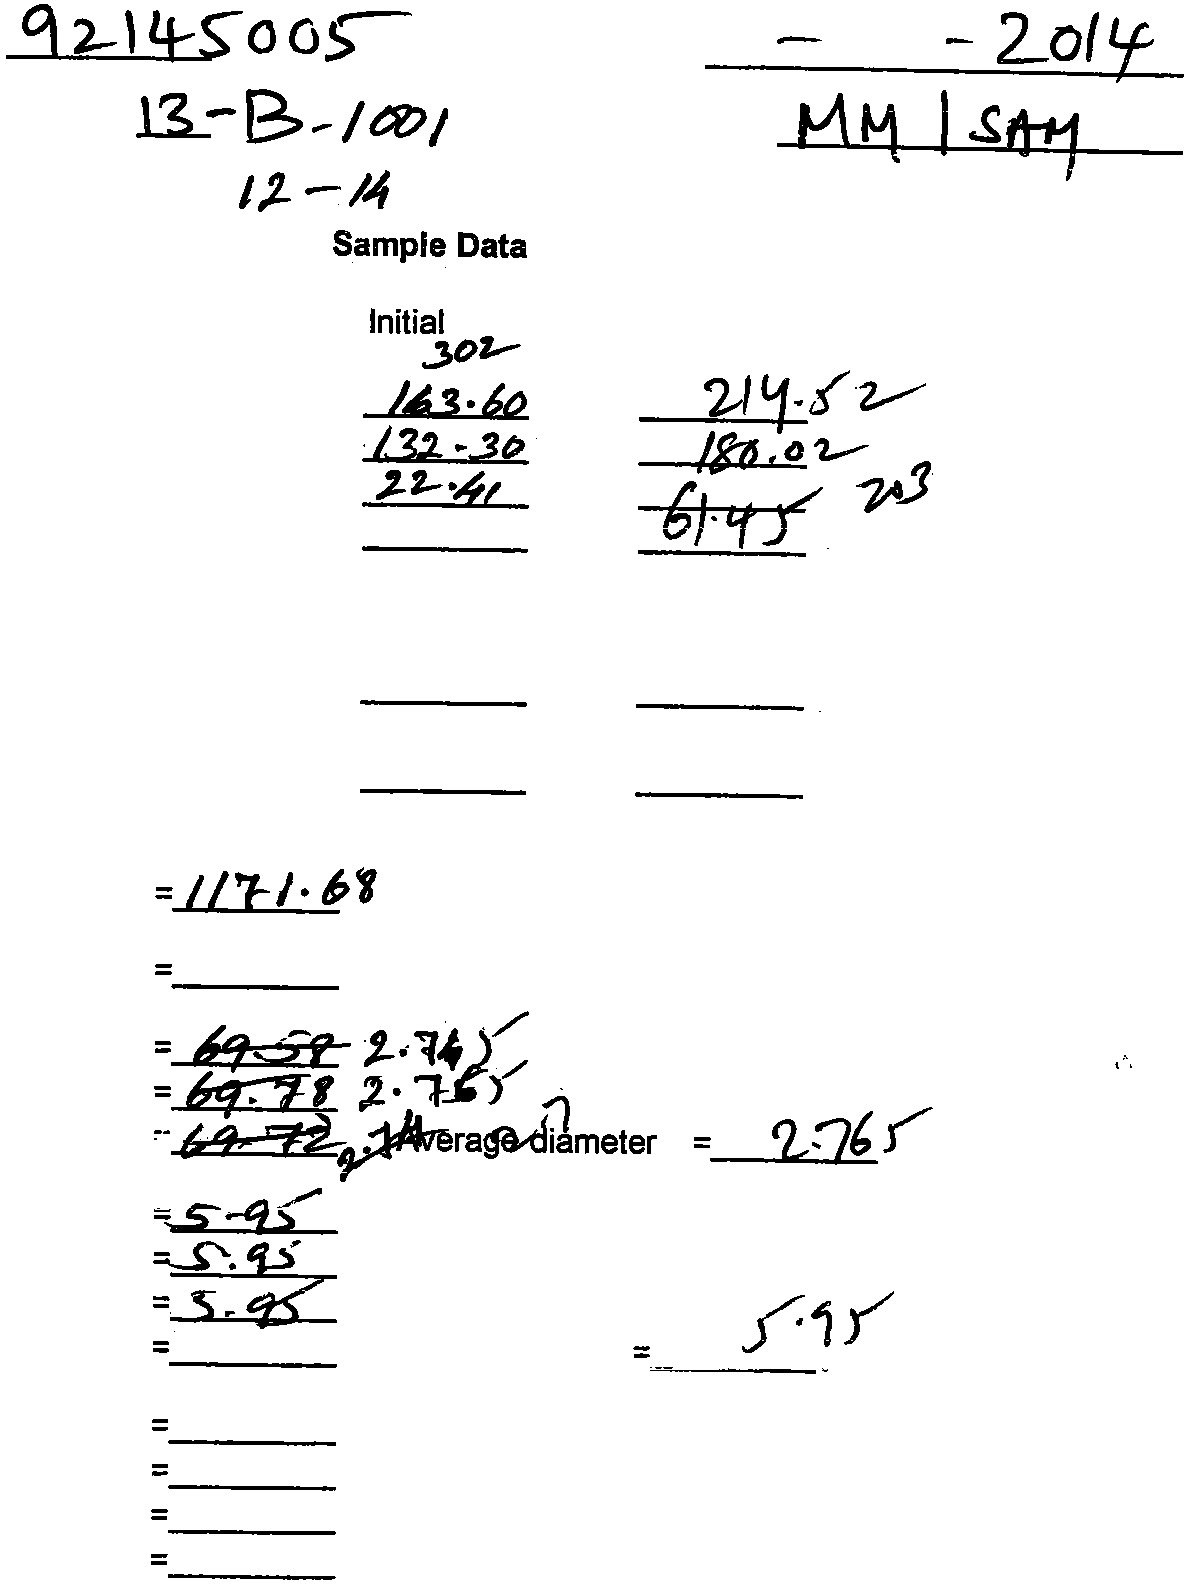 92145005 - -2014
13-B-1001 MM | SAM
12-14
Sample Data
Initial
302
163.60 214.52
132.30 180.02
22.41 61.45 203
= 1171.68
=
= 69.58 2.745
= 69.78
= 69.72 Average diameter = 2.765
= 5.95
= 5.95
= 5.95
= = 5.95
=
=
=
=